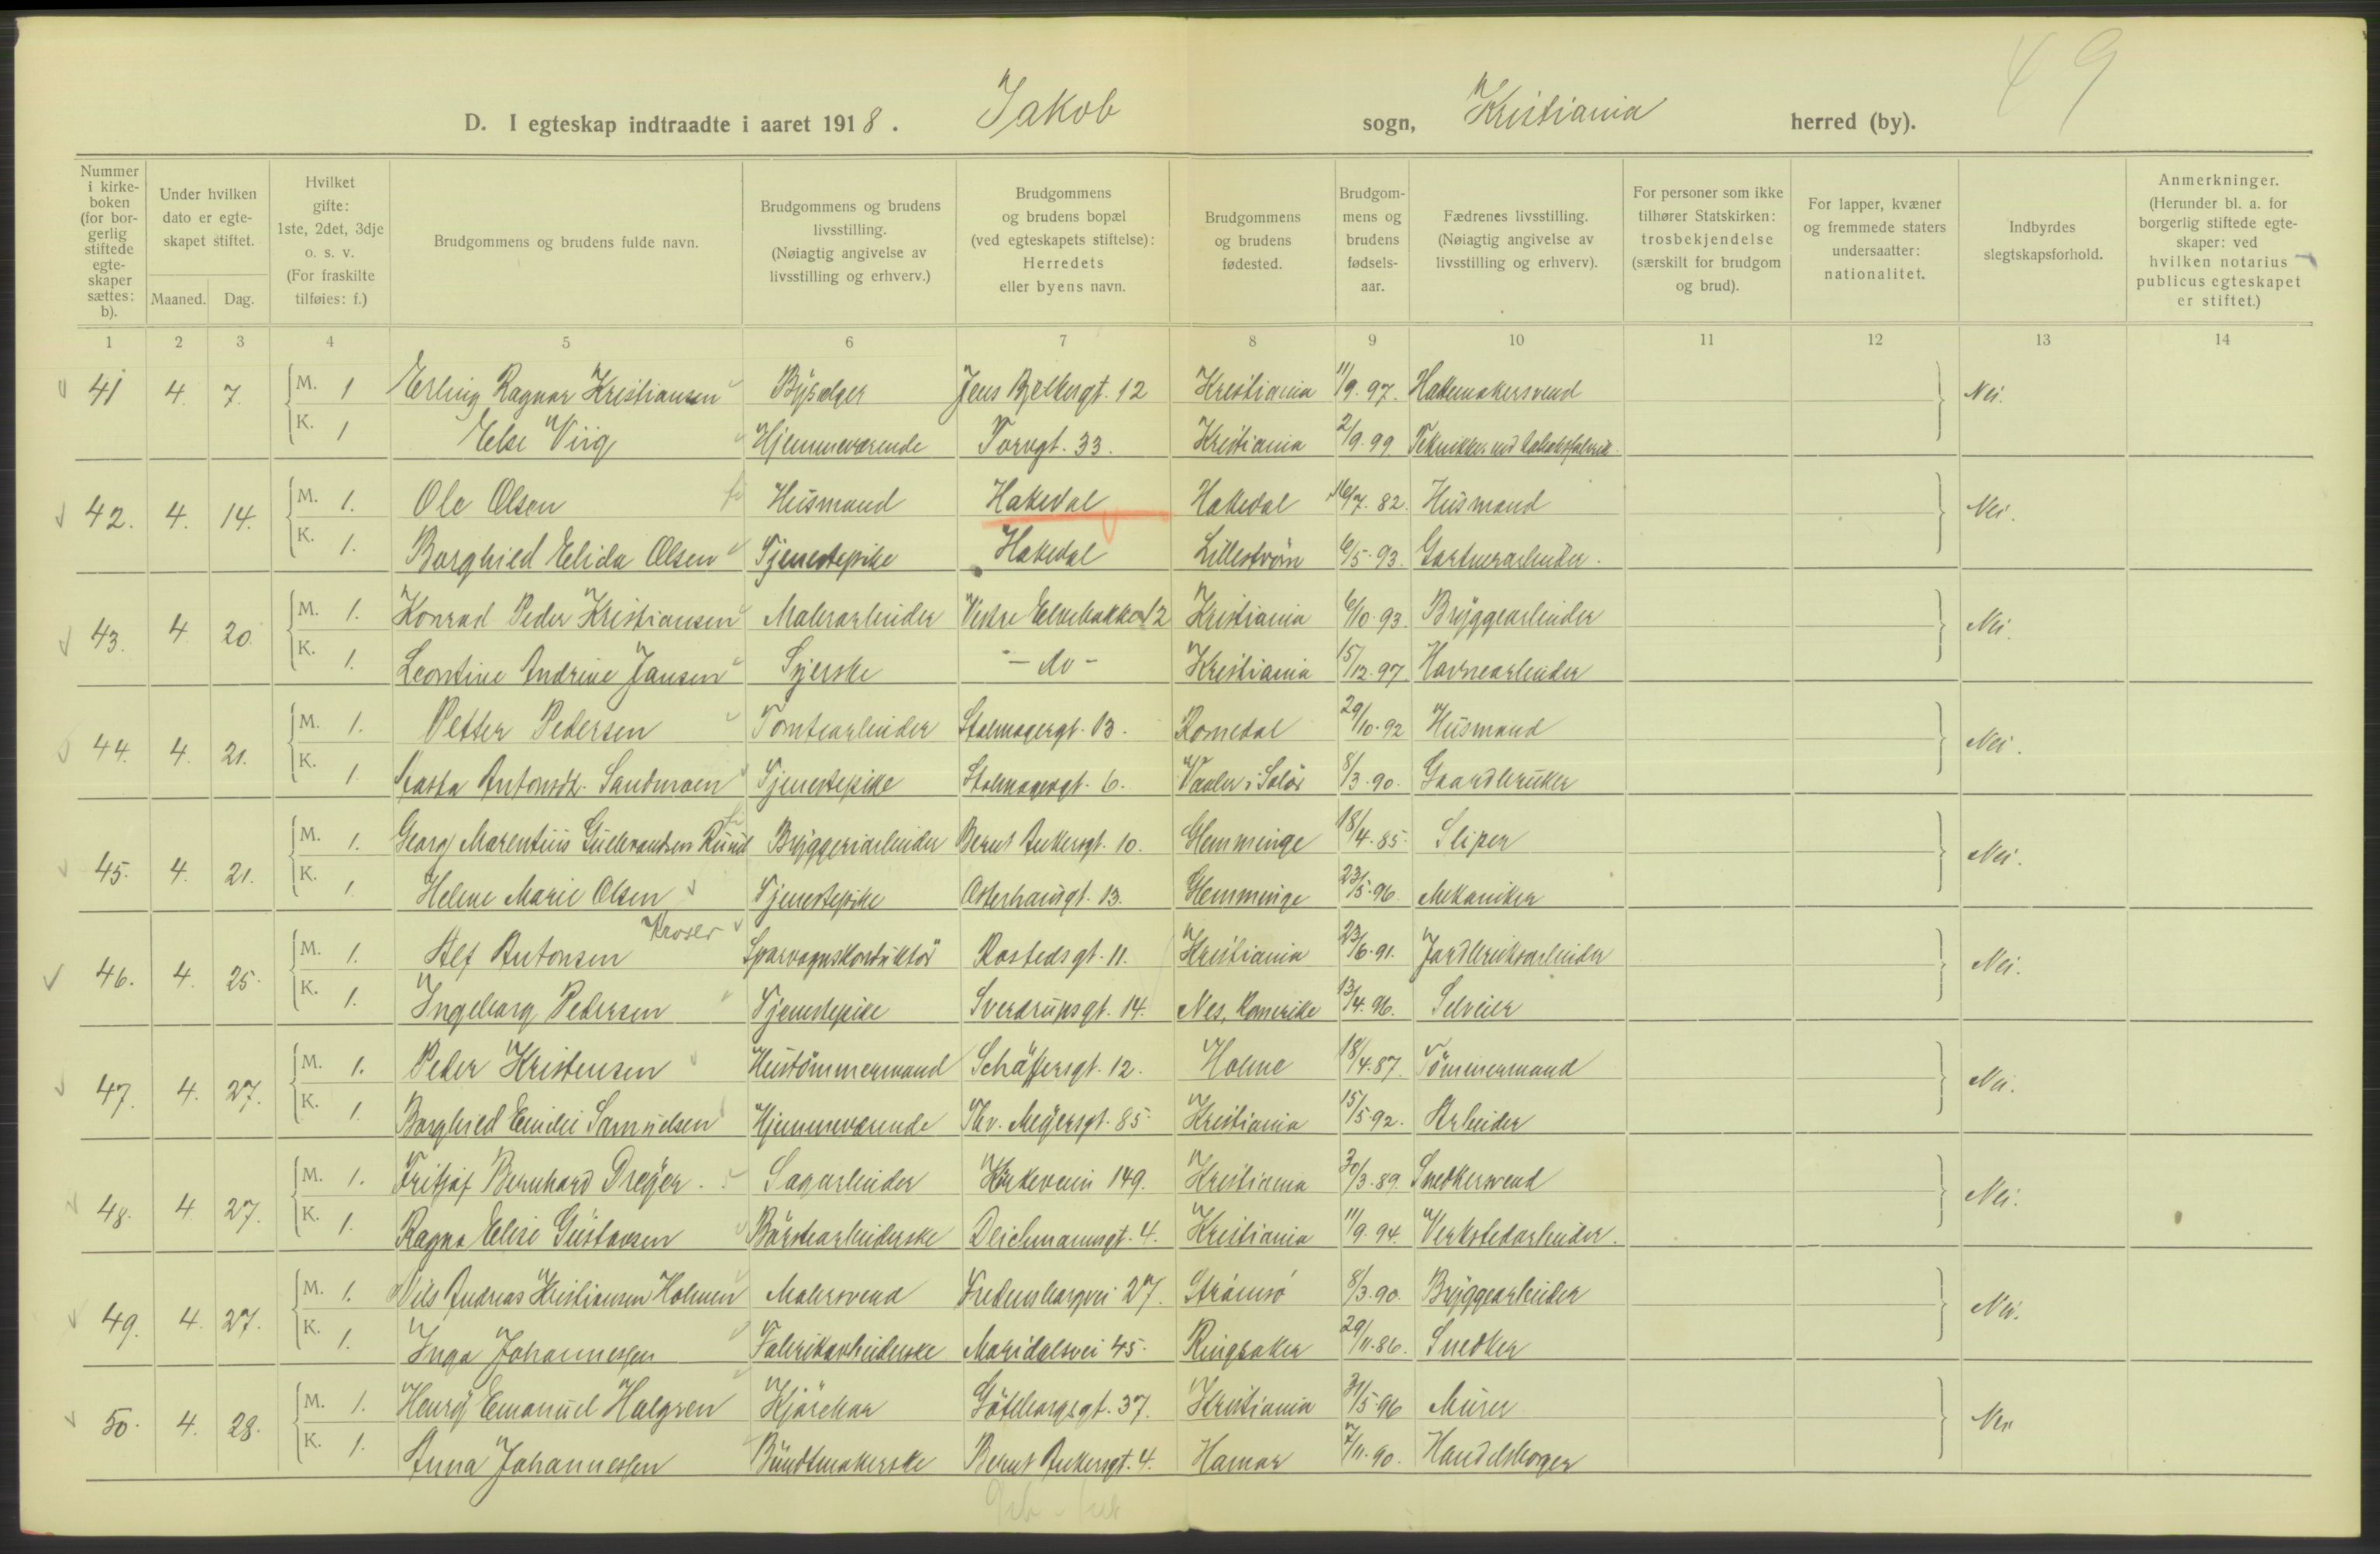 49
D. I egteskap indtraadte i aaret 1918. Jakob sogn, Kristiania herred (by).
Nummer i kirke- boken (for bor- gerlig stiftede egte- skaper sættes: b).
Under hvilken dato er egte- skapet stiftet.
Maaned. Dag.
Hvilket gifte: 1ste, 2det, 3dje o. s. v. (For fraskilte tilføies: f.)
Brudgommens og brudens fulde navn.
Brudgommens og brudens livsstilling. (Nøiagtig angivelse av livsstilling og erhverv.)
Brudgommens og brudens bopæl (ved egteskapets stiftelse): Herredets eller byens navn.
Brudgommens og brudens fødested.
Brudgom- mens og brudens fødsels- aar.
Fædrenes livsstilling. (Nøiagtig angivelse av livsstilling og erhverv).
For personer som ikke tilhører Statskirken: trosbekjendelse (særskilt for brudgom og brud).
For lapper, kvæner og fremmede staters undersaatter: nationalitet.
Indbyrdes slegtskapsforhold.
Anmerkninger. (Herunder bl. a. for borgerlig stiftede egte- skaper: ved hvilken notarius publicus egteskapet er stiftet.)
1 2 3 4 5 6 7 8 9 10 11 12 13 14
41 4. 7. M. 1 Erling Ragnar Kristiansen Bysælger Jens Bjelkesgt. 12 Kristiania 11/9. 97. Hattemakersvend Nei.
K. 1 Else Viig Hjemmeværende Torvgt. 33. Kristiania 2/9. 99. Tekniker ved
42. 4. 14. M. 1. Ole Olsen Husmand Hakedal Hakedal 16/7. 82. Husmand Nei.
K. 1. Borghild Elida Olsen Tjenestepike Hakedal Lillestrøm 6/5. 93. Gartnerarbeider.
43. 4 20 M. 1. Konrad Peder Kristiansen Malerarbeider Vestre Elvebakke 12 Kristiania 6/10. 93. Bryggearbeider Nei.
K. 1. Leontine Andrine Jansen Syerske - do - Kristiania 15/12. 97 Havnearbeider
44. 4. 21. M. 1. Petter Pedersen Tomtearbeider Stolmagergt. 13. Romedal 29/10. 92 Husmand Nei.
K. 1 Antonsdt. Sandmoen Tjenestepike Stolmagergt. 6. Vaaler i Solør 8/3. 90. Gaardbruker
45. 4. 21. M. 1. Georg Marentius Gulbrandsen Ruud Bryggeriarbeider Bernt Ankersgt. 10. Glemminge 18/4. 85. Sliper Nei.
K. 1. Helene Marie Olsen Tjenestepike Osterhausgt. 13. Glemminge 23/5. 96. Mekaniker
Kroser
46. 4. 25. M. 1. Alf Antonsen Sporvognskonduktør Rostedsgt. 11. Kristiania 23/6. 91. Jordbruksarbeider Nei.
K. 1. Ingeborg Pedersen Tjenestepike Sverdrupsgt. 14. Nes, Romerike 13/4. 96. Selveier
47. 4. 27. M. 1. Peder Kristensen Hustömmermand Schäffersgt. 12. Holme 18/4. 87. Tömmermand Nei.
K. 1. Borghild Emilie Samuelsen Hjemmeværende Thv. Meyersgt. 85. Kristiania 15/5. 92. Arbeider
48. 4 27. M. 1. Fritjof Bernhard Dreyer. Sagarbeider Kirkeveien 149. Kristiania 30/3. 89. Snedkersvend Nei.
K. 1. Ragna Elise Gustavsen Börstearbeiderske Deichmannsgt. 4. Kristiania 11/9. 94. Verkstedarbeider.
49. 4. 27. M. 1. Nils Andreas Kristiansen Holmen Malersvend Fredensborgvei 27. Strömsö 8/3. 90. Bryggearbeider Nei.
K. 1. Inga Johannessen Fabrikarbeiderske Maridalsvei 45. Ringsaker 29/11. 86. Snedker
50. 4. 28. M. 1. Henry Emanuel Halgren Kjörekar Göteborgsgt. 37. Kristiania 31/5. 96 Murer Nei
K. 1. Anna Johannessen Bundtmakerske Bernt Ankersgt. 4. Hamar 7/11. 90. Handelsborger